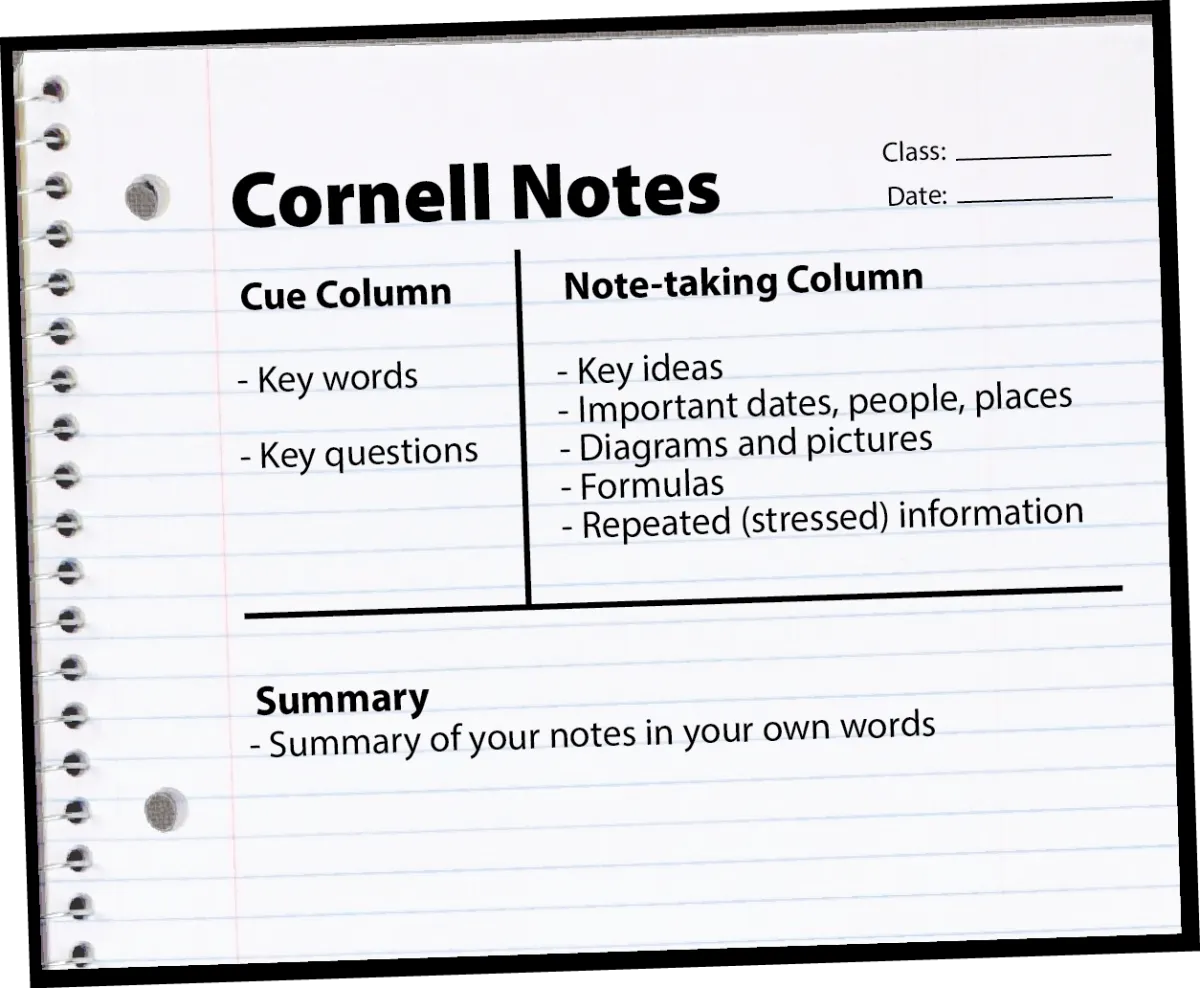 Cornell Notes
Class:
Date:
Cue Column
- Key words
- Key questions
Note-taking Column
- Key ideas
- Important dates, people, places
- Diagrams and pictures
- Formulas
- Repeated (stressed) information
Summary
- Summary of your notes in your own words